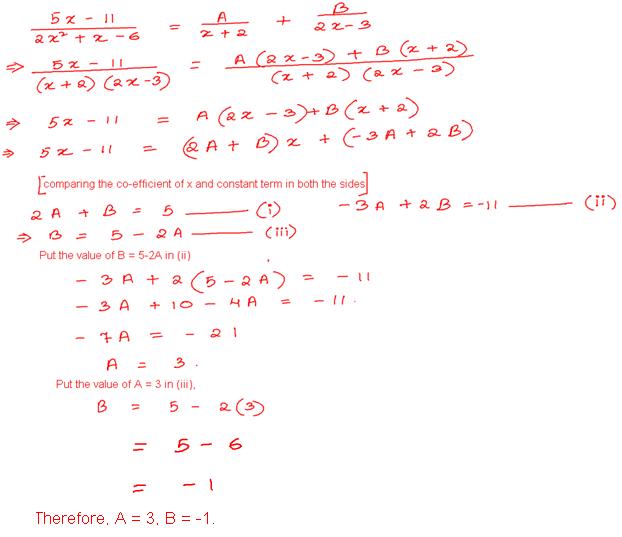 (5x - 11)/(2x² + x - 6) = A/(x + 2) + B/(2x - 3)
⇒ (5x - 11)/((x + 2) (2x - 3)) = (A (2x - 3) + B (x + 2))/((x + 2) (2x - 3))
⇒ 5x - 11 = A (2x - 3) + B (x + 2)
⇒ 5x - 11 = (2A + B) x + (-3A + 2B)
[comparing the co-efficient of x and constant term in both the sides]
2A + B = 5 —— (i) -3A + 2B = -11 —— (ii)
⇒ B = 5 - 2A —— (iii)
Put the value of B = 5-2A in (ii)
- 3A + 2 (5 - 2A) = - 11
- 3A + 10 - 4A = - 11.
- 7A = - 21
A = 3.
Put the value of A = 3 in (iii),
B = 5 - 2(3)
= 5 - 6
= - 1
Therefore, A = 3, B = -1.